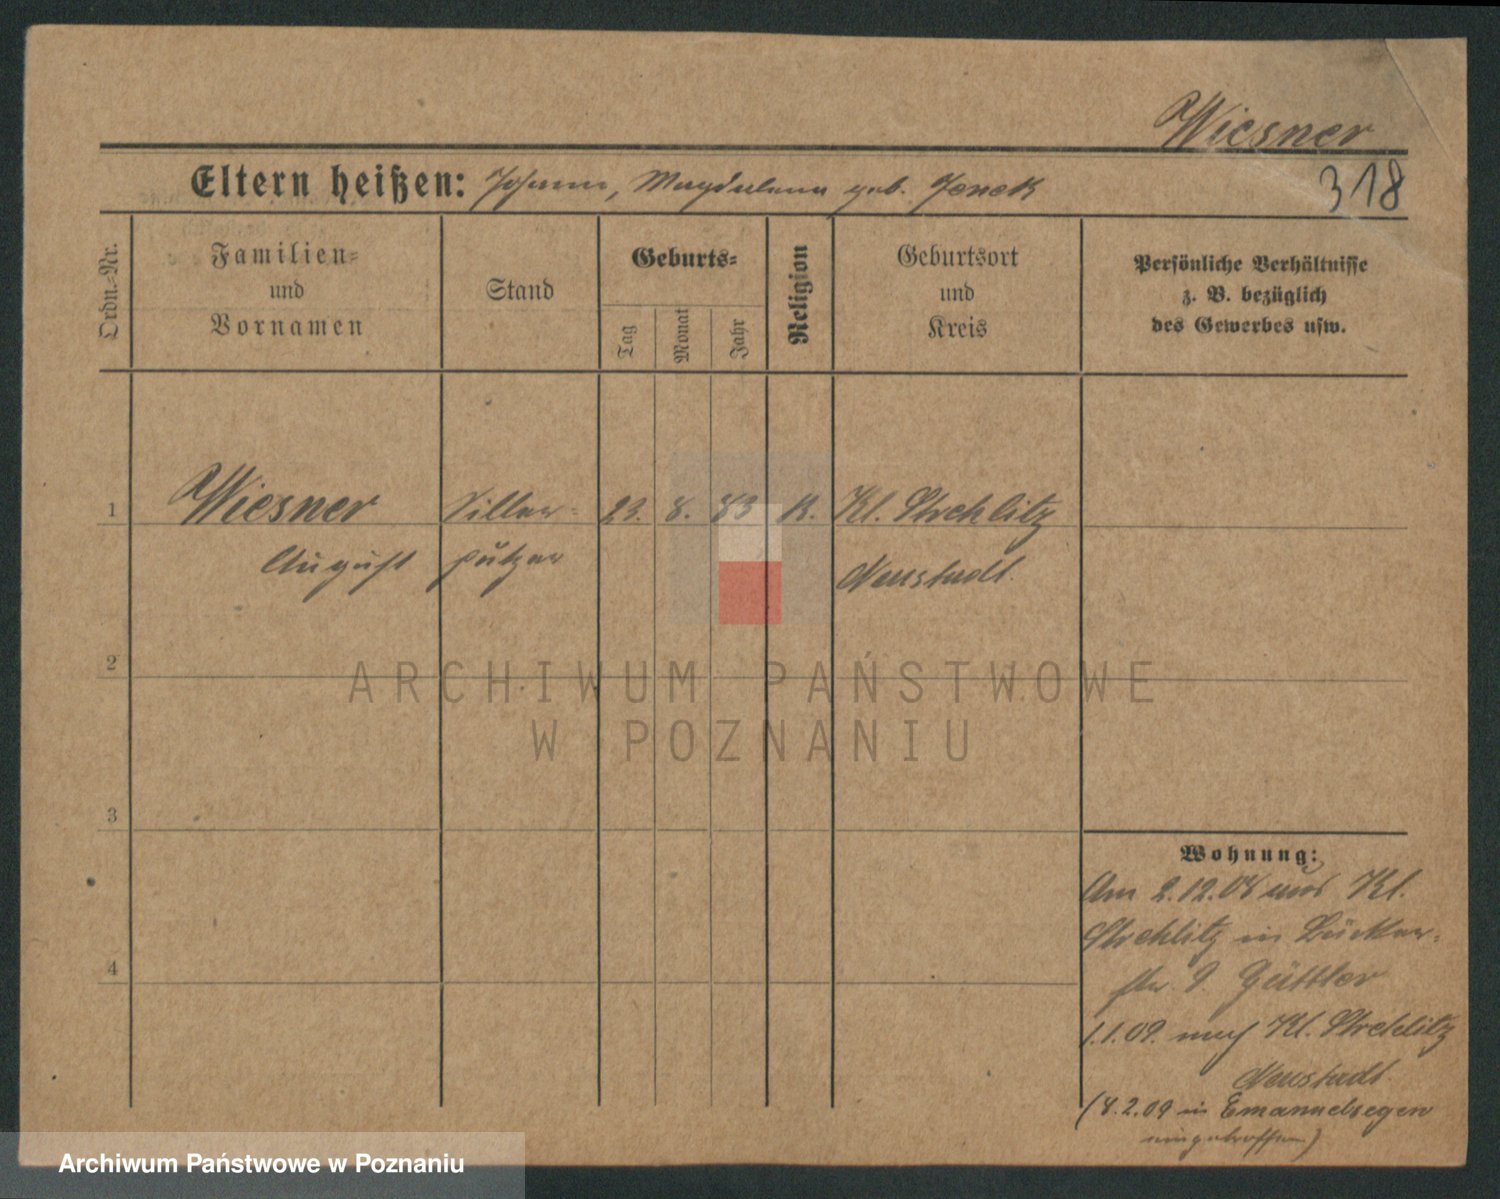 Wiesner
Eltern heißen: Johann, Magdalena geb. Jenek
318
Ordn.-Nr.
Familien-
und
Vornamen
Stand
Geburts-
Tag
Monat
Jahr
Religion
Geburtsort
und
Kreis
Persönliche Verhältnisse
z. B. bezüglich
des Gewerbes usw.
1
Wiesner
23. 8. 83 K. Kl. Strehlitz
August
putzer
Neustadt.
2
ARCHIWUM PAŃSTWOWE
W POZNANIU
3
4
Wohnung:
Am 2.12.08 aus Kl.
Strehlitz in Bäcker-
str. 9. Güttler
1.1.09. nach Kl. Strehlitz
Neustadt.
(8.2.09 in Emanuelsegen
eingetroffen)
Archiwum Państwowe w Poznaniu